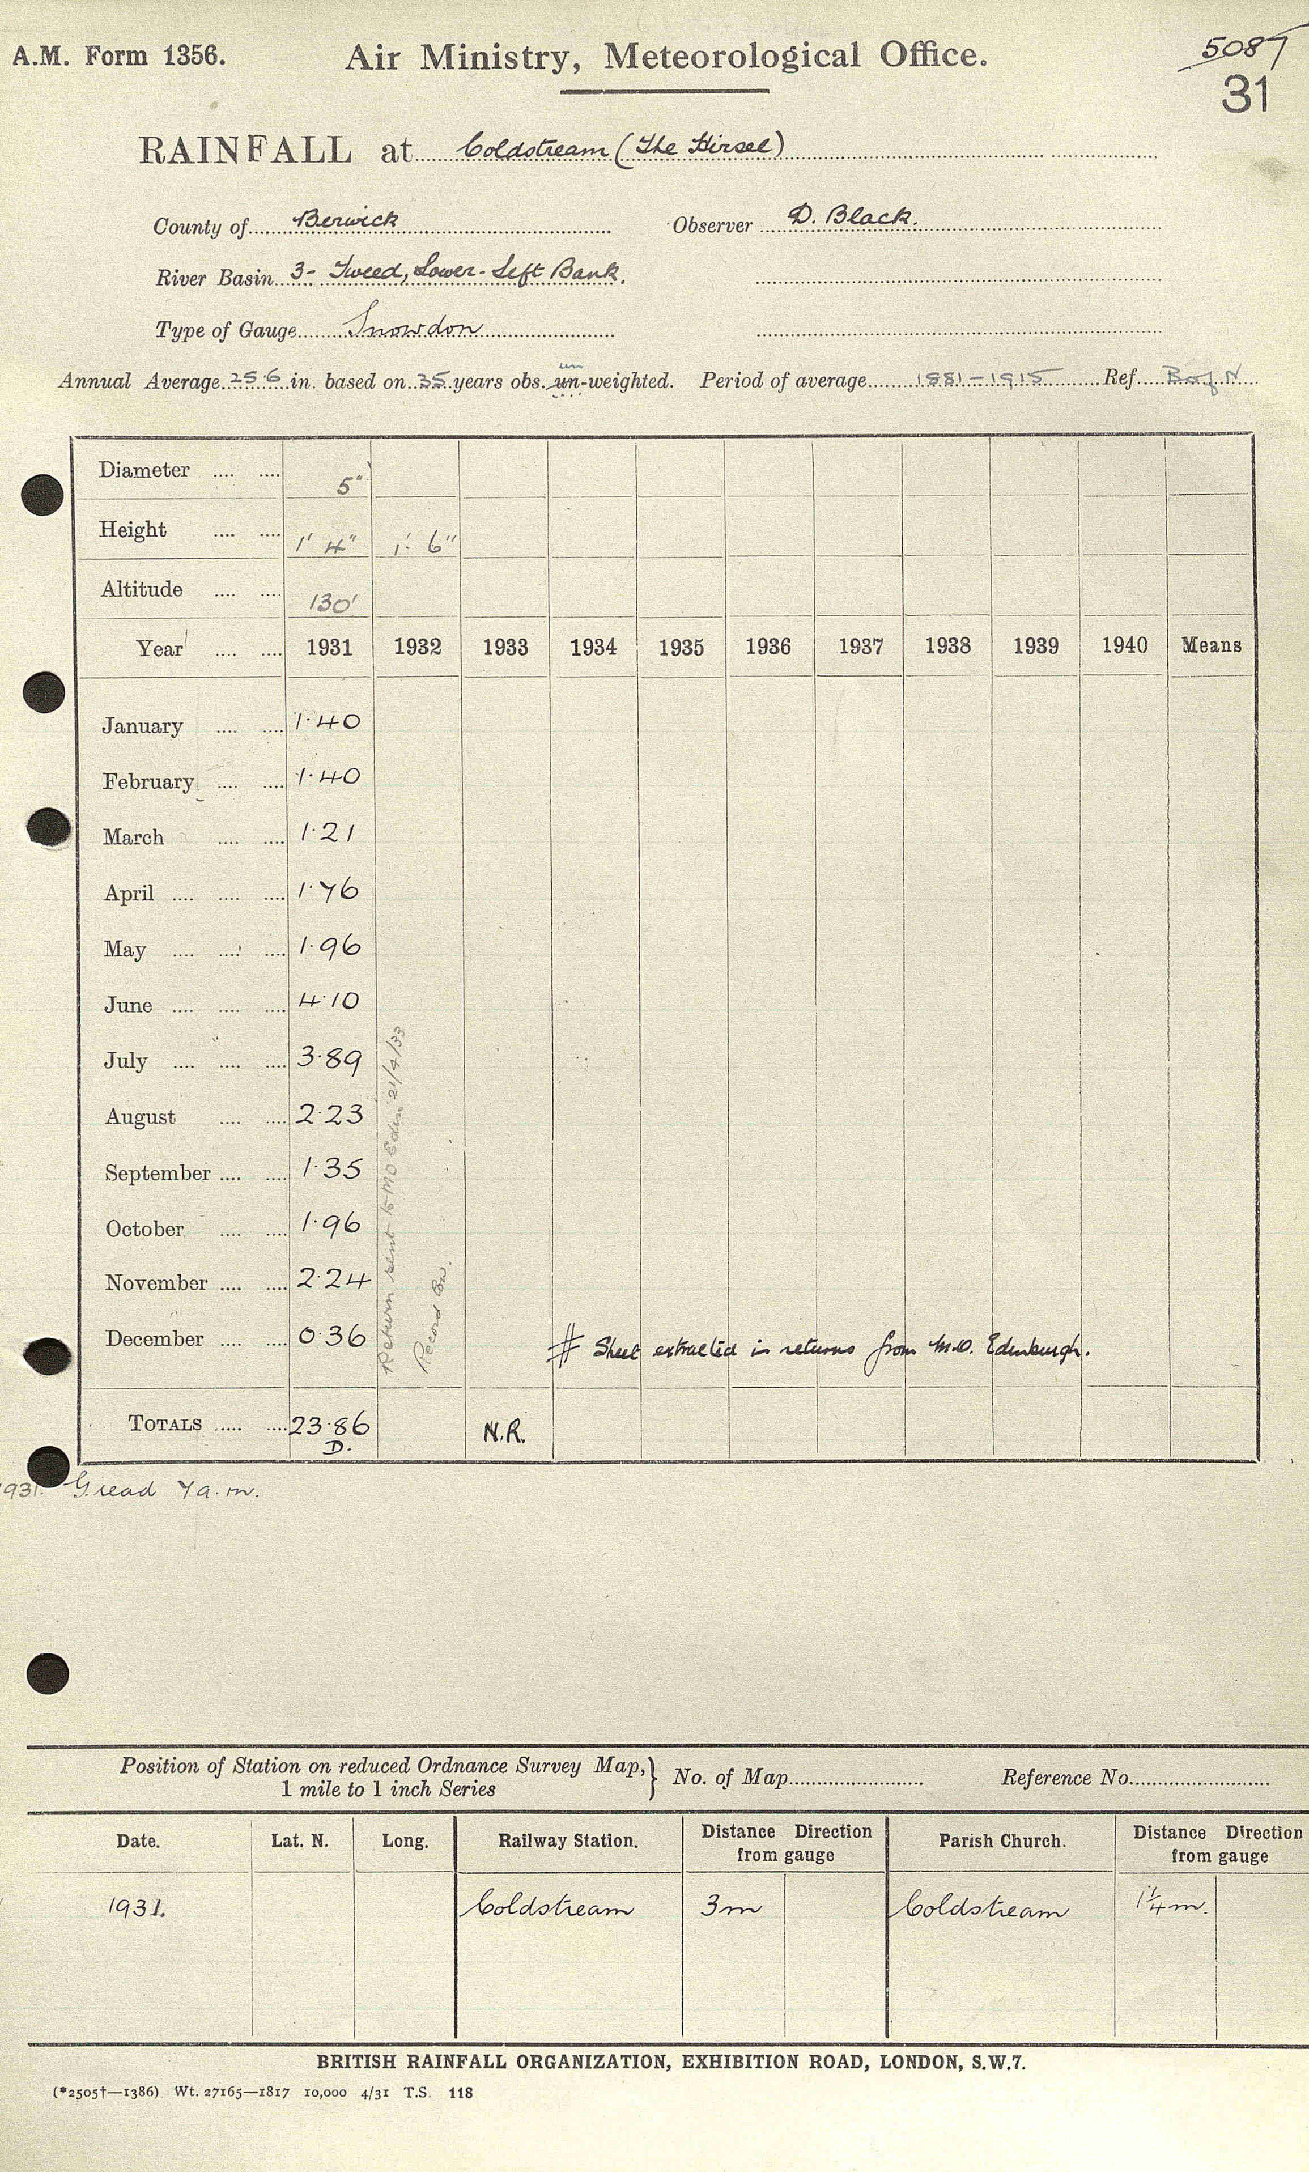 A.M. Form 1356. Air Ministry, Meteorological Office. 5087
31
RAINFALL at Coldstream (The Hirsel)
County of Berwick Observer D. Black.
River Basin 3- Tweed, Lower-Left Bank.
Type of Gauge Snowdon
Annual Average 25.6 in. based on 35 years obs. un-weighted. Period of average 1881-1915 Ref.
Diameter 5"
Height 1' 4" 1' 6"
Altitude 130'
Year 1931 1932 1933 1934 1935 1936 1937 1938 1939 1940 Means
January 1.40
February 1.40
March 1.21
April 1.76
May 1.96
June 4.10
July 3.89
August 2.23
September 1.35
October 1.96
November 2.24
December 0.36
Return sent to MO Edin 21/4/33
Record
# Sheet extracted in returns from M.O. Edinburgh.
TOTALS 23.86 N.R.
D.
1931 G. read 7 a.m.
Position of Station on reduced Ordnance Survey Map, 1 mile to 1 inch Series } No. of Map Reference No.
Date. Lat. N. Long. Railway Station. Distance Direction from gauge Parish Church. Distance Direction from gauge
1931. Coldstream 3m Coldstream 1¼m.
BRITISH RAINFALL ORGANIZATION, EXHIBITION ROAD, LONDON, S.W.7.
(*2505†—1386) Wt. 27165—1817 10,000 4/31 T.S. 118